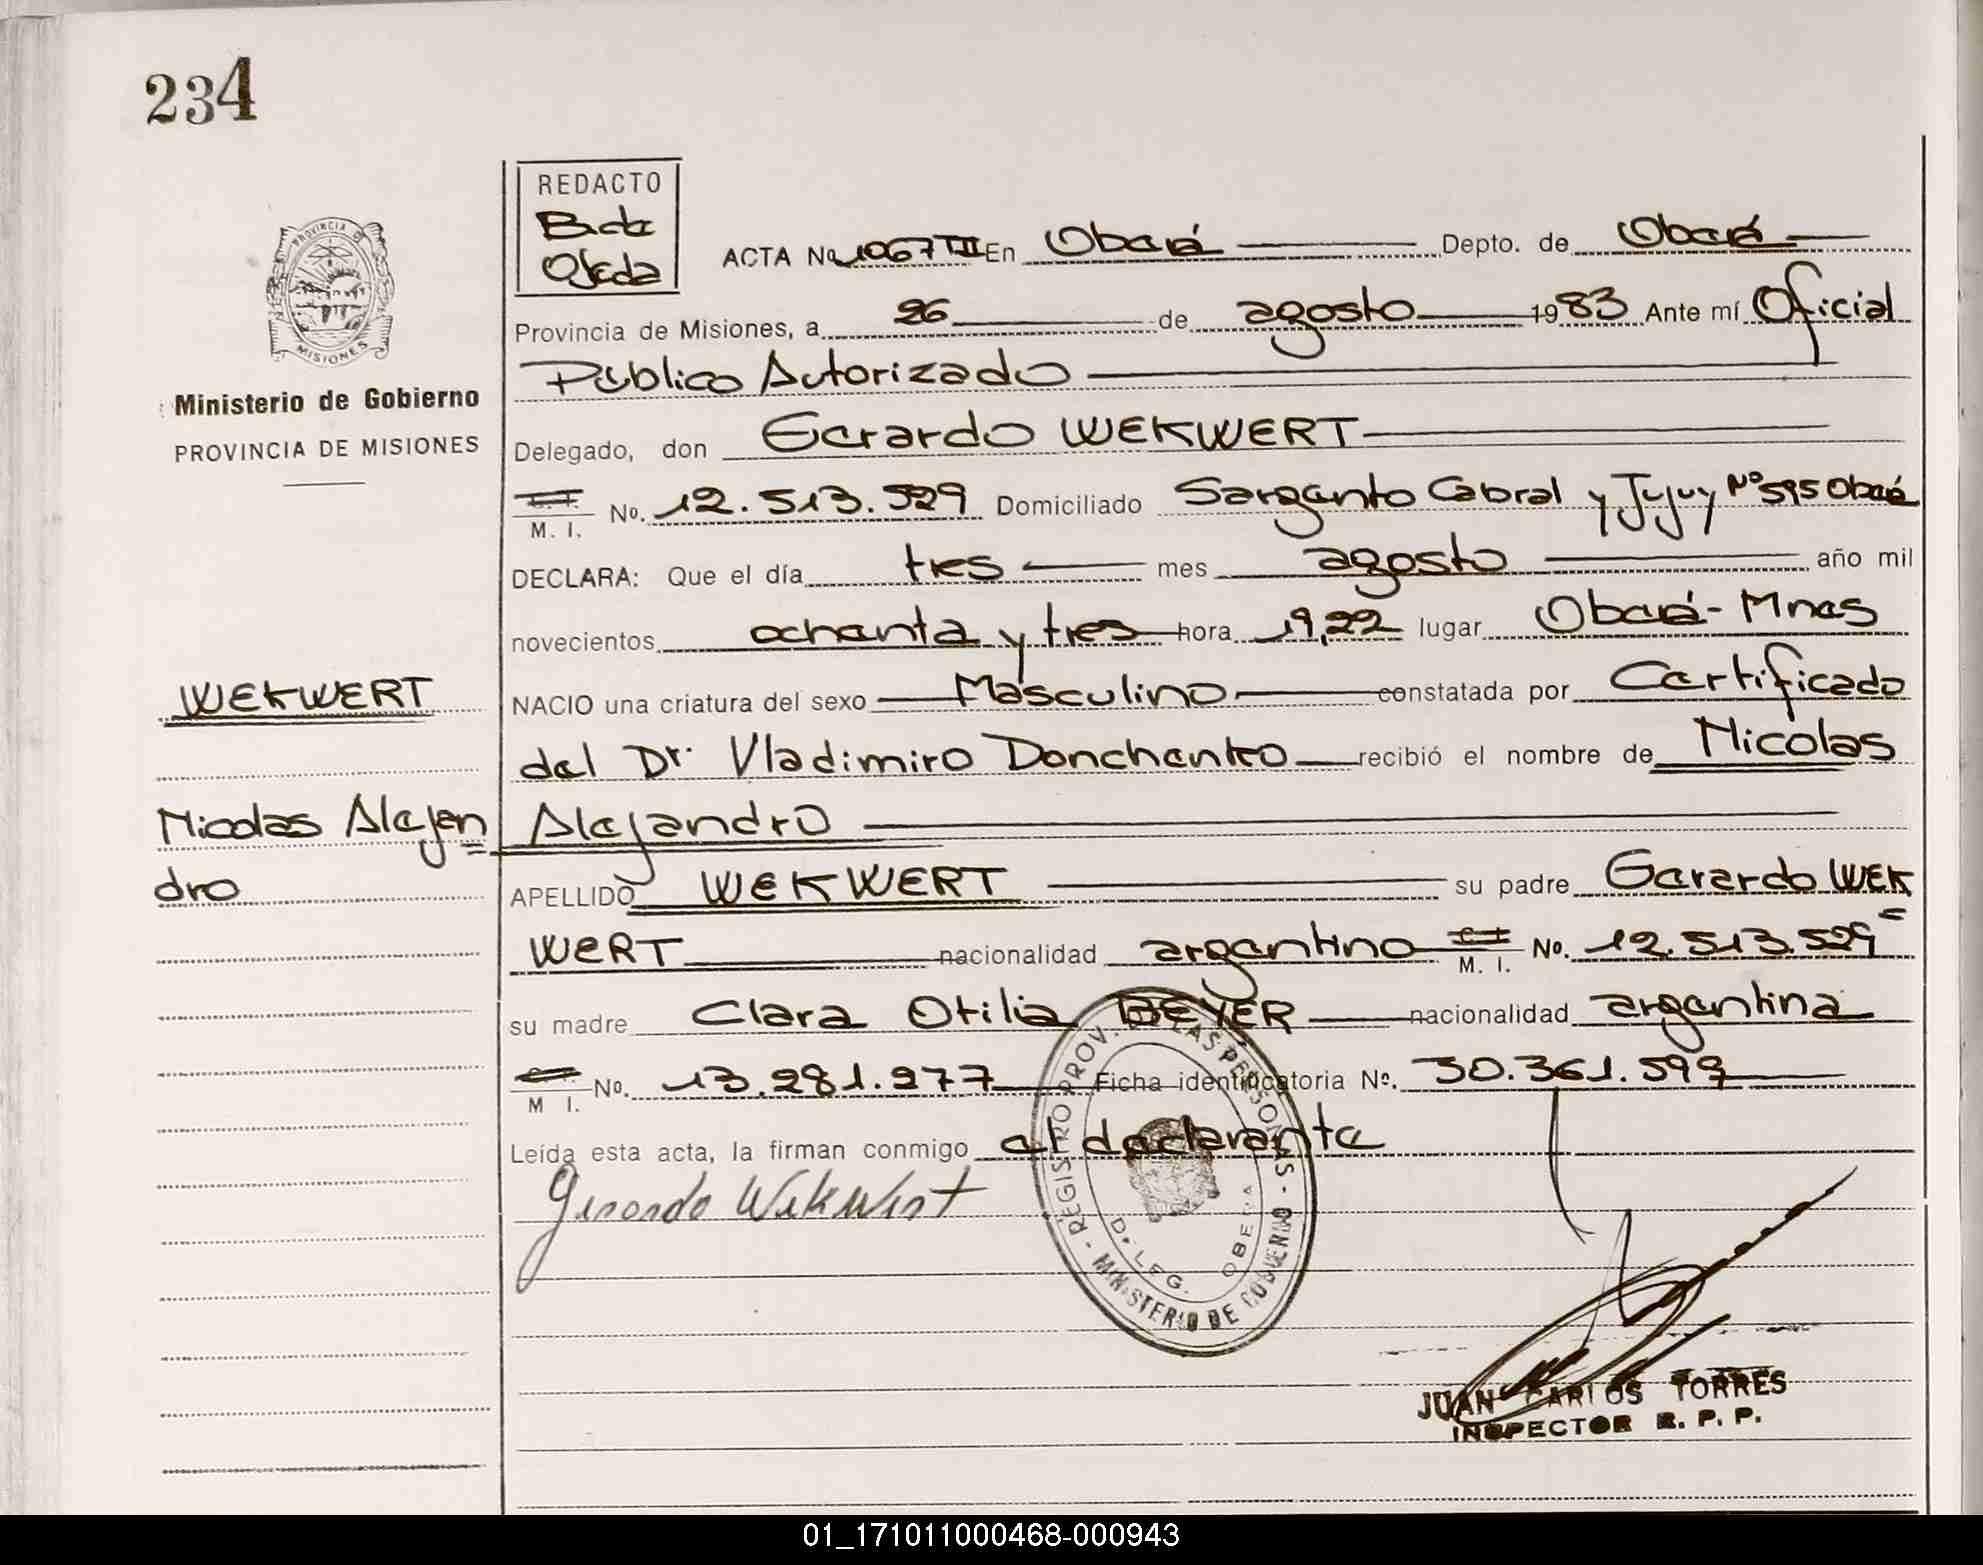 234
REDACTO
Beto
Ojeda
PROVINCIA DE
MISIONES
Ministerio de Gobierno
PROVINCIA DE MISIONES
ACTA No 1067 TIII En Oberá Depto. de Oberá
Provincia de Misiones, a 26 de agosto 1983 Ante mí Oficial
Público Autorizado
Delegado, don Gerardo WEKWERT
C.I. M. I. No. 12.513.529 Domiciliado Sargento Cabral y Jujuy Nº 595 Oberá
DECLARA: Que el día tres mes agosto año mil
novecientos ochenta y tres hora 19,22 lugar Oberá - Mnes
NACIO una criatura del sexo Masculino constatada por Certificado
del Dr. Vladimiro Donchenko recibió el nombre de Nicolas
Alejandro
APELLIDO WEKWERT su padre Gerardo WEK
WERT nacionalidad argentino C.I. M. I. No. 12.513.529
su madre Clara Otilia BEYER nacionalidad argentina
C.I. M I. No. 13.281.277 Ficha identificatoria Nº. 30.361.599
Leída esta acta, la firman conmigo el declarante
Gerardo Wekwert
WEKWERT
Nicolas Alejan
dro
REGISTRO PROV. DE LAS PERSONAS - MINISTERIO DE GOBIERNO -
DELEG. OBERA
JUAN CARLOS TORRES
INSPECTOR R. P. P.
01_171011000468-000943